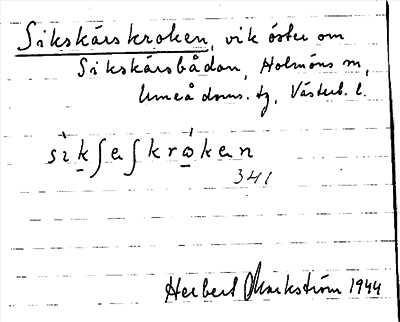 Sikskärskroken, vik öster om
Sikskärsbådan, Holmöns sn,
Umeå doms. tg, Västerb. l.
sìkʃeʃkrókan
341
Herbert Markström 1944